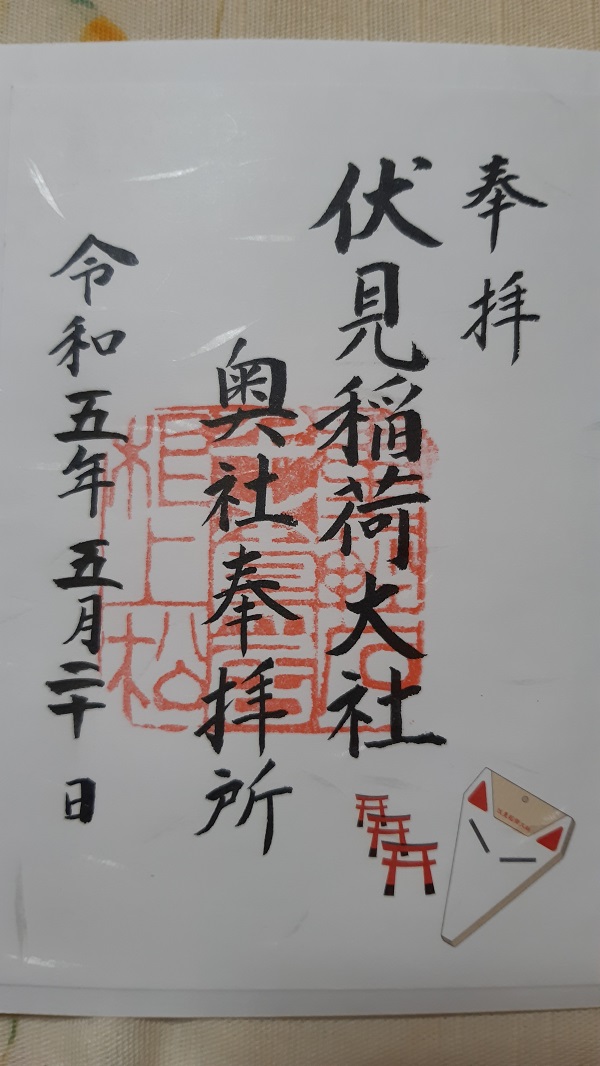 奉拝
伏見稲荷大社
奥社奉拝所
令和五年五月二十日